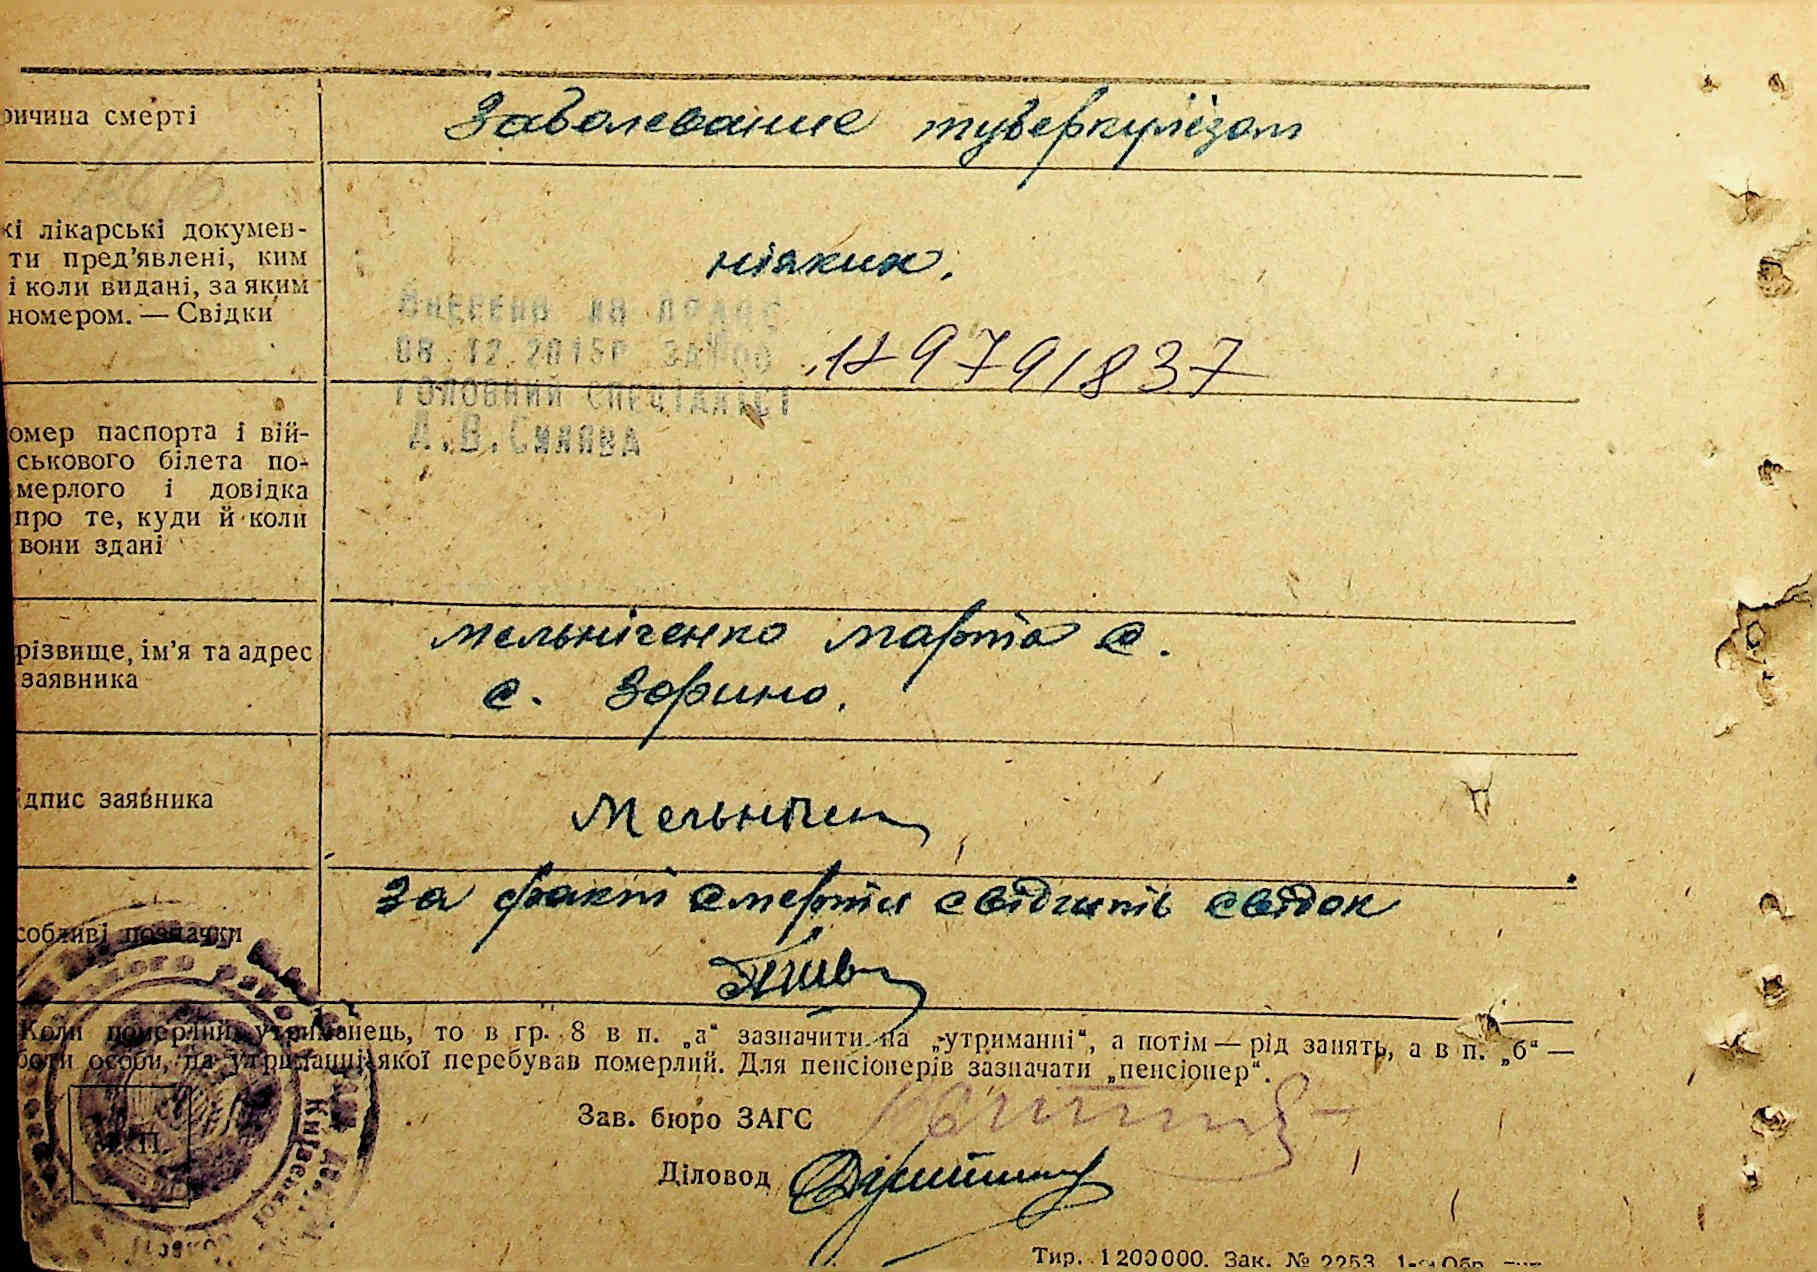 ричина смерті
Заболевание туберкулізом
кі лікарські докумен-
ти пред’явлені, ким
і коли видані, за яким
номером. — Свідки
ніяких.
Внесено до ДРАЦС
08.12.2015р ЗА №00
ГОЛОВНИЙ СПЕЦІАЛІСТ
179791837
омер паспорта і вій-
ськового білета по-
мерлого і довідка
про те, куди й коли
вони здані
різвище, ім’я та адрес
заявника
Мельніченко Марта С.
с. Зорино.
ідпис заявника
Мельничен
собливі позначки
за факт смерти свідчить свідок
Коли померлий утриманець, то в гр. 8 в п. „а“ зазначити на „утриманні“, а потім — рід занять, а в п. „б“ —
боти особи, на утриманні якої перебував померлий. Для пенсіонерів зазначати „пенсіонер“.
М. П.
Зав. бюро ЗАГС
Діловод
Тир. 1200000. Зак. № 2253. 1-а Обр.